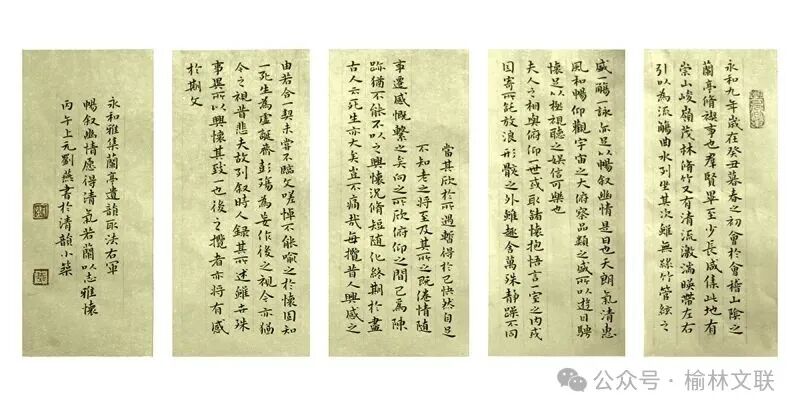 永和九年歲在癸丑暮春之初會於會稽山陰之
蘭亭脩禊事也羣賢畢至少長咸集此地有
崇山峻嶺茂林脩竹又有清流激湍暎帶左右
引以為流觴曲水列坐其次雖無絲竹管絃之
盛一觴一詠亦足以暢叙幽情是日也天朗氣清惠
風和暢仰觀宇宙之大俯察品類之盛所以遊目騁
懷足以極視聽之娛信可樂也
夫人之相與俯仰一世或取諸懷抱悟言一室之内或
因寄所託放浪形骸之外雖趣舍萬殊静躁不同
當其欣於所遇暫得於己快然自足
不知老之將至及其所之既倦情隨
事遷感慨繫之矣向之所欣俯仰之間已為陳
跡猶不能不以之興懷況脩短隨化終期於盡
古人云死生亦大矣豈不痛哉每攬昔人興感之
由若合一契未嘗不臨文嗟悼不能喻之於懷固知
一死生為虛誕齊彭殤為妄作後之視今亦猶
今之視昔悲夫故列叙時人録其所述雖世殊
事異所以興懷其致一也後之攬者亦將有感
於斯文
永和雅集蘭亭遺韻取法右軍
暢叙幽情愿得清氣若蘭以志雅懷
丙午上元劉燕書於清韻小築
公众号·榆林文联